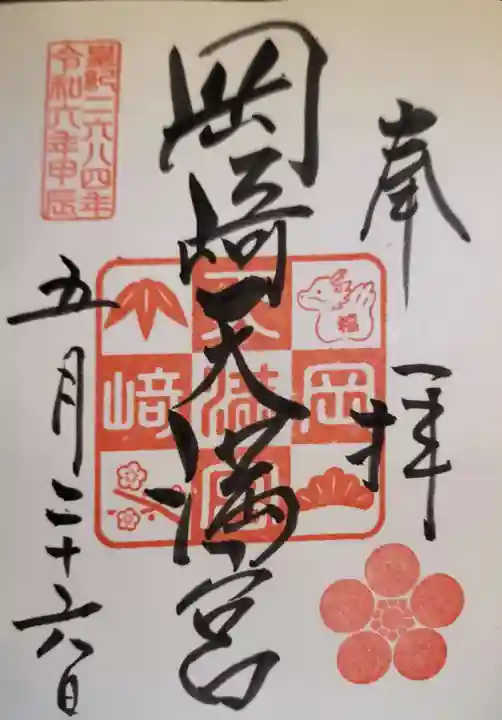 奉拝
岡崎天満宮
岡﨑天満宮
福
皇紀二六八四年
令和六年甲辰
五月二十六日